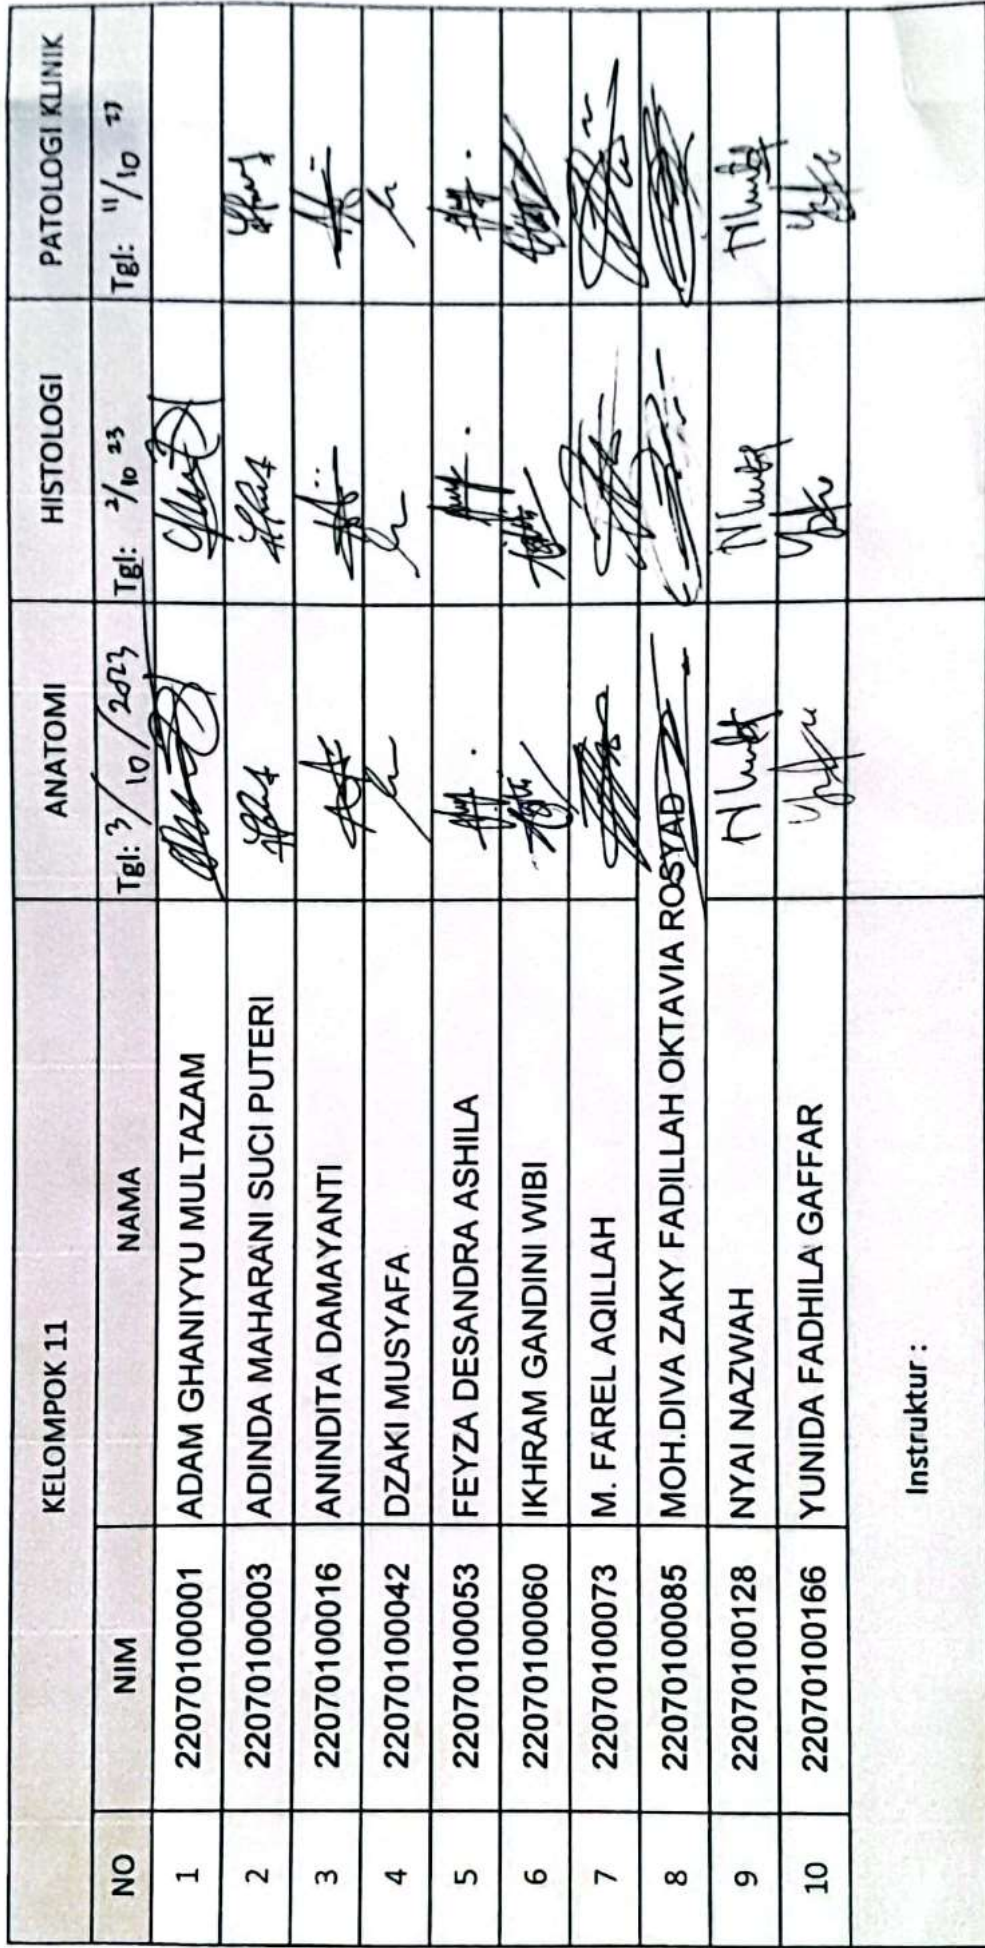 KELOMPOK 11 ANATOMI HISTOLOGI PATOLOGI KLINIK
NO NIM NAMA Tgl: 3/10/2023 Tgl: 2/10 23 Tgl: 11/10 23
1 22070100001 ADAM GHANIYYU MULTAZAM
2 22070100003 ADINDA MAHARANI SUCI PUTERI
3 22070100016 ANINDITA DAMAYANTI
4 22070100042 DZAKI MUSYAFA
5 22070100053 FEYZA DESANDRA ASHILA
6 22070100060 IKHRAM GANDINI WIBI
7 22070100073 M. FAREL AQILLAH
8 22070100085 MOH.DIVA ZAKY FADILLAH OKTAVIA ROSYAD
9 22070100128 NYAI NAZWAH
10 22070100166 YUNIDA FADHILA GAFFAR
Instruktur :